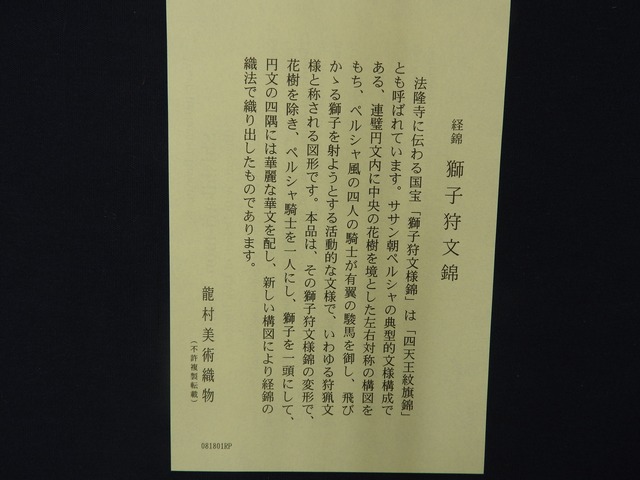 経錦 獅子狩文錦
法隆寺に伝わる国宝「獅子狩文様錦」は「四天王紋旗錦」
とも呼ばれています。ササン朝ペルシャの典型的文様構成で
ある、連璧円文内に中央の花樹を境とした左右対称の構図を
もち、ペルシャ風の四人の騎士が有翼の駿馬を御し、飛び
かゝる獅子を射ようとする活動的な文様で、いわゆる狩猟文
様と称される図形です。本品は、その獅子狩文様錦の変形で、
花樹を除き、ペルシャ騎士を一人にし、獅子を一頭にして、
円文の四隅には華麗な華文を配し、新しい構図により経錦の
織法で織り出したものであります。
龍村美術織物
(不許複製転載)
081801RP